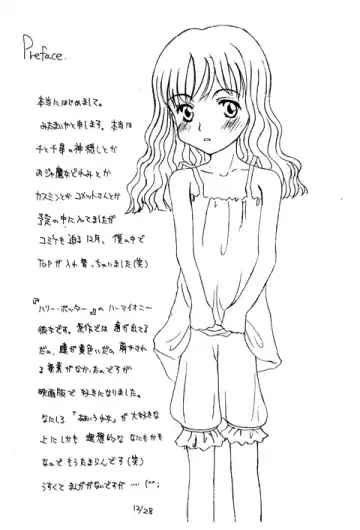 Preface.
本当にはじめまして。
みたまいやと申します。本当は
千と千尋の神隠しとか
おジャ魔女どれみとか
カスミンとかコメットさんとか
予定の中に入ってましたが
コミケも迫る12月、僕の中で
TOPが入れ替っちゃいました(笑)
『ハリー・ポッター』のハーマイオニー
彼女です。原作では歯が出てる
だの、瞳が黄色いだの 萌やされ
る要素がなかったのですが
映画版で好きになりました。
なにしろ「ああいう少女」が大好きな
上にしかも理想的ななにもかも
なのでもうたまらんです(笑)
うすくてまんががないですが…(^^;
12/28